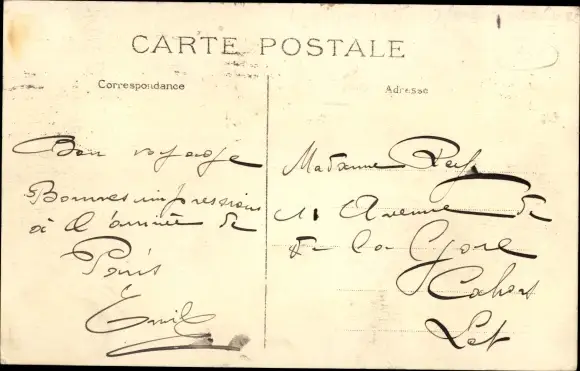 CARTE POSTALE
Correspondance
Adresse
Bon voyage
Bonnes impressions
à l'arrivée de
Paris
Emile
Madame Rey
11 Avenue de
de la Gare
Cahors
Lot